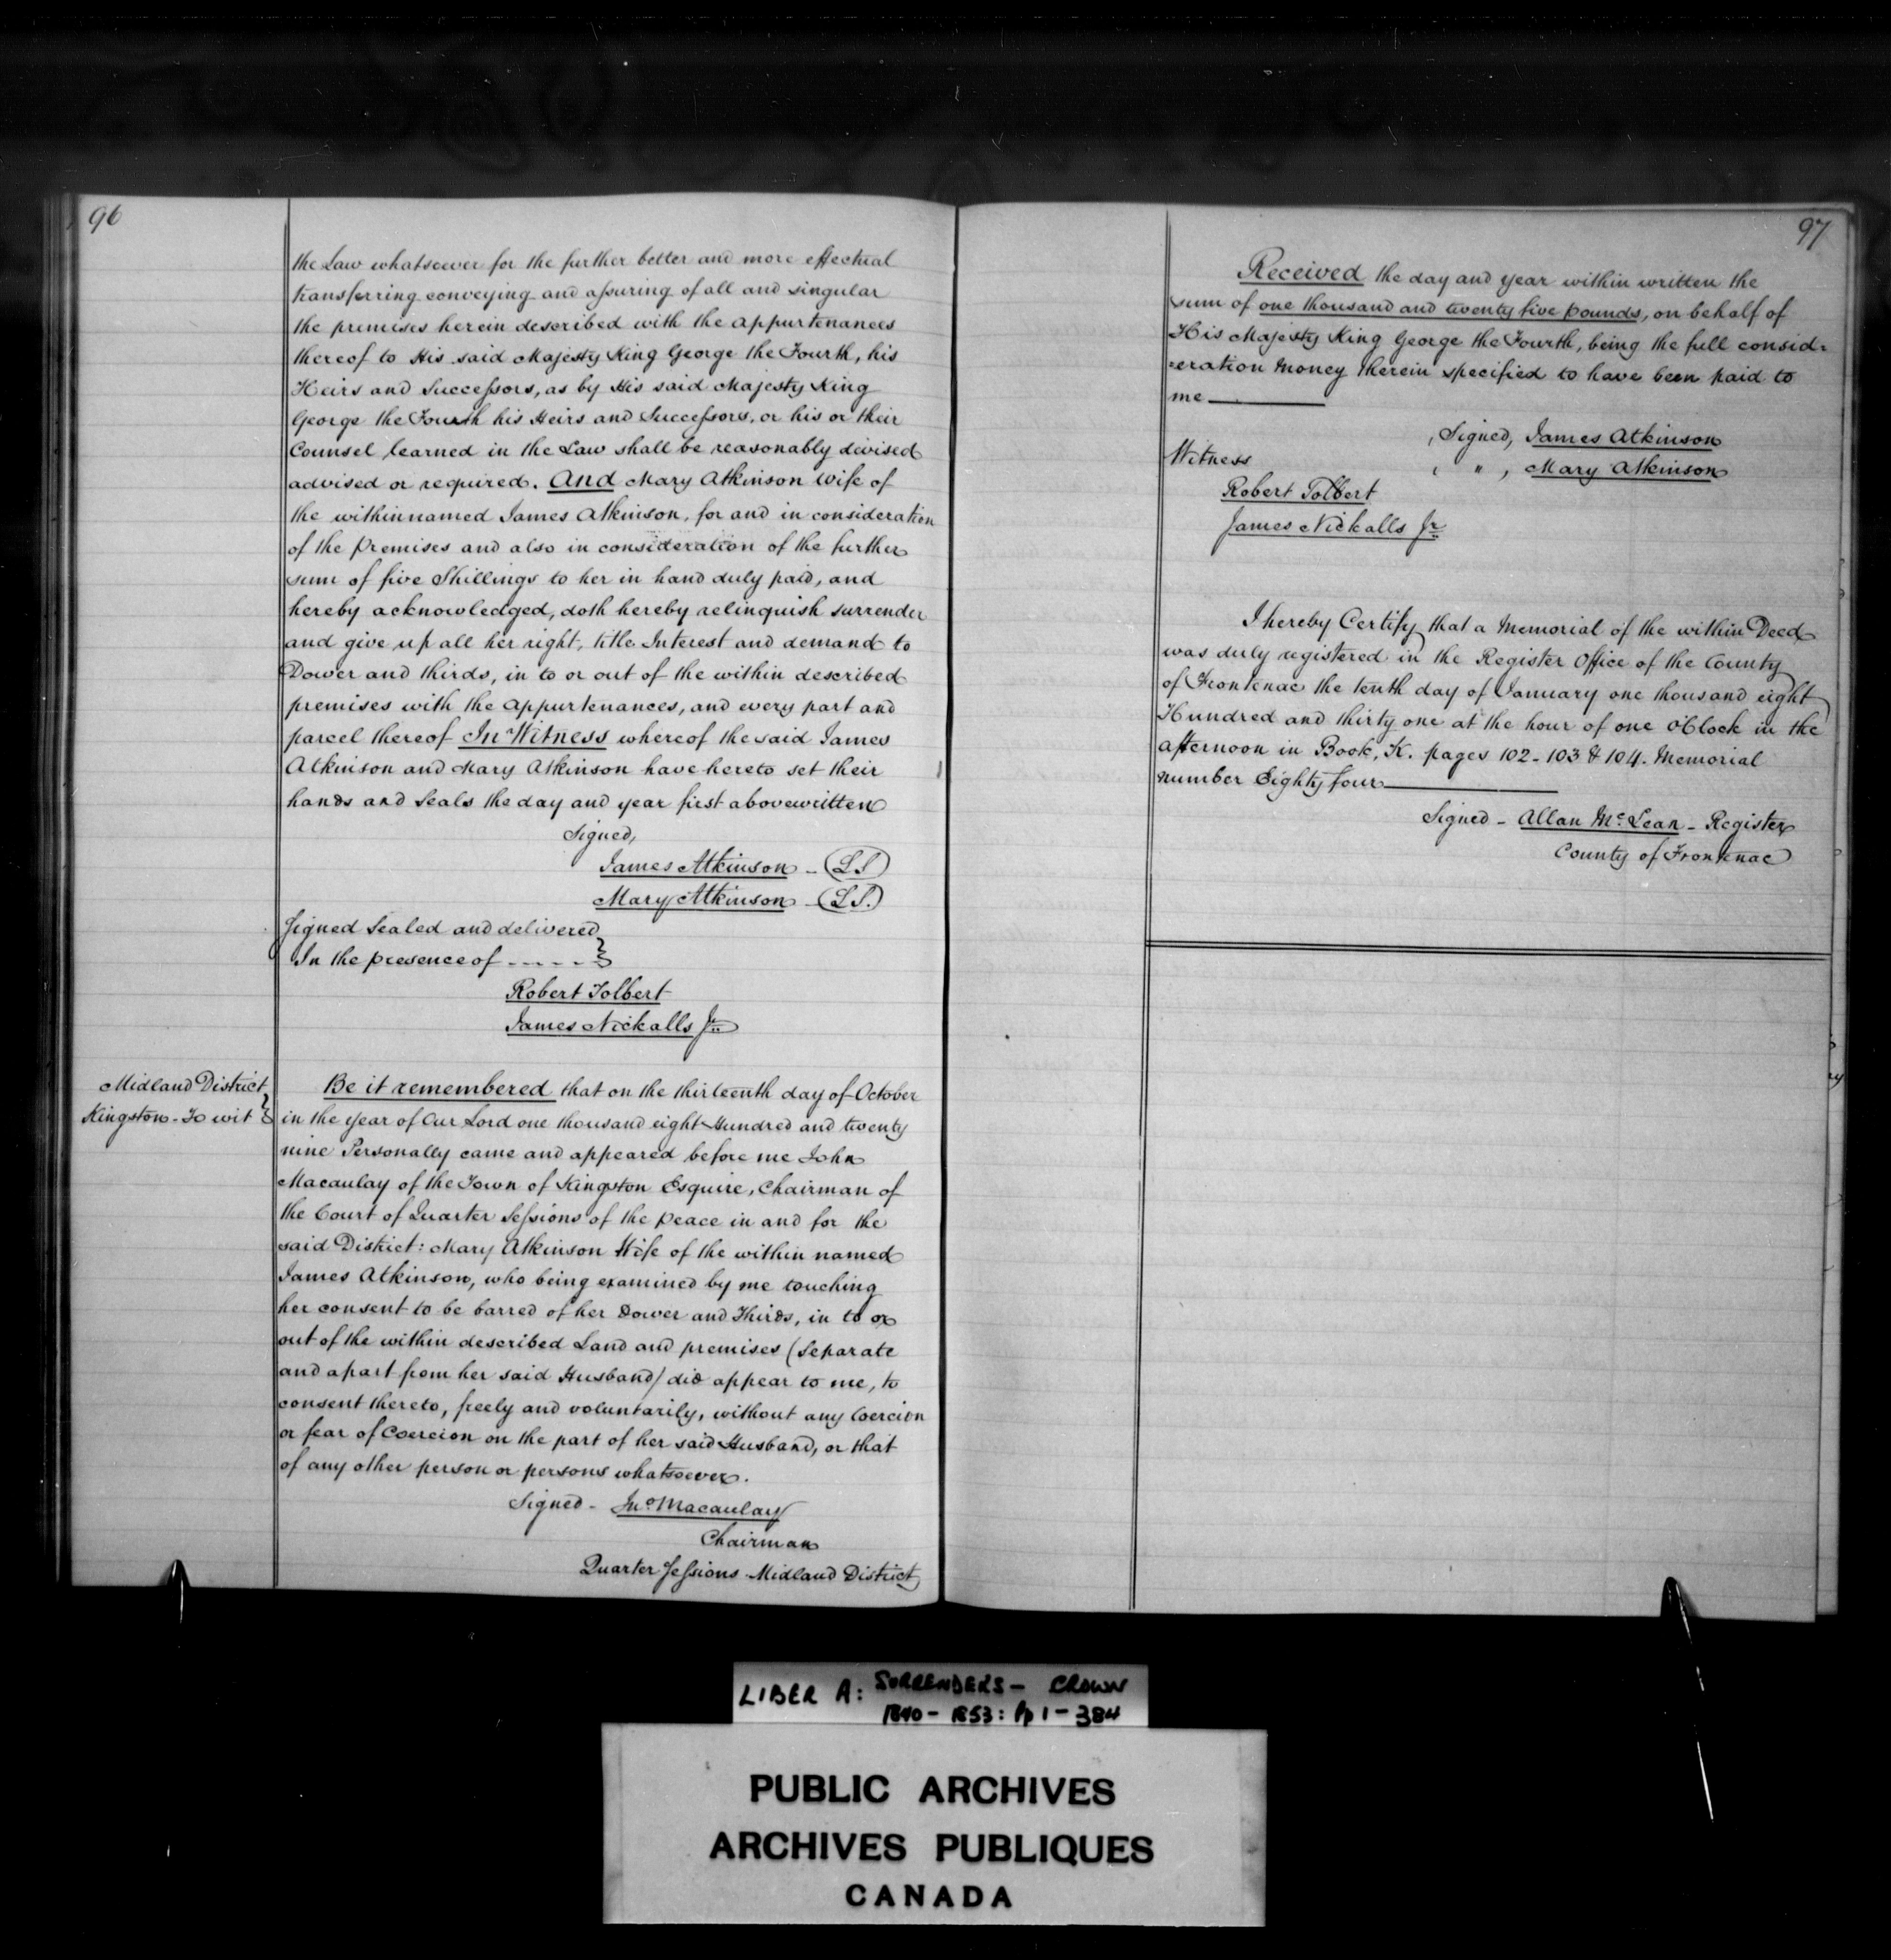 96
the Law whatsoever for the further better and more effectual
transferring conveying and assuring of all and singular
the premises herein described with the appurtenances
thereof to His said Majesty King George the Fourth, his
Heirs and Successors, as by His said Majesty King
George the Fourth his Heirs and Successors, or his or their
Counsel learned in the Law shall be reasonably devised
advised or required. And Mary Atkinson Wife of
the within named James Atkinson, for and in consideration
of the Premises and also in consideration of the further
sum of five Shillings to her in hand duly paid, and
hereby acknowledged, doth hereby relinquish surrender
and give up all her right, title Interest and demand to
Dower and thirds, in to or out of the within described
premises with the appurtenances, and every part and
parcel thereof In Witness whereof the said James
Atkinson and Mary Atkinson have hereto set their
hands and Seals the day and year first abovewritten
Signed,
James Atkinson - (L.S)
Mary Atkinson - (L.S.)
Signed Sealed and delivered
In the presence of - - - - }
Robert Tolbert
James Nickalls Jr
Midland District
Kingston - To wit }
Be it remembered that on the thirteenth day of October
in the Year of Our Lord one thousand eight Hundred and twenty
nine Personally came and appeared before me John
Macaulay of the Town of Kingston Esquire, Chairman of
the Court of Quarter Sessions of the peace in and for the
said District: Mary Atkinson Wife of the within named
James Atkinson, who being examined by me touching
her consent to be barred of her Dower and Thirds, in to or
out of the within described Land and premises (Separate
and apart from her said Husband) did appear to me, to
consent thereto, freely and voluntarily, without any Coercion
or fear of Coercion on the part of her said Husband, or that
of any other person or persons whatsoever.
Signed - Jno Macaulay
Chairman
Quarter Sessions Midland District
97
Received the day and year within written the
sum of one thousand and twenty five pounds, on behalf of
His Majesty King George the Fourth, being the full consid=
=eration Money therein specified to have been paid to
me
Signed, James Atkinson
Witness
" , Mary Atkinson
Robert Tolbert
James Nickalls Jr
I hereby Certify that a Memorial of the within Deed
was duly registered in the Register Office of the County
of Frontenac the tenth day of January one thousand eight
Hundred and thirty one at the hour of one O'Clock in the
afternoon in Book, K. pages 102 - 103 & 104. Memorial
number Eighty four
Signed - Allan Mc Lean - Register
County of Frontenac
LIBER A: SURRENDERS - CROWN
1840 - 1853: Pp 1 - 384
PUBLIC ARCHIVES
ARCHIVES PUBLIQUES
CANADA